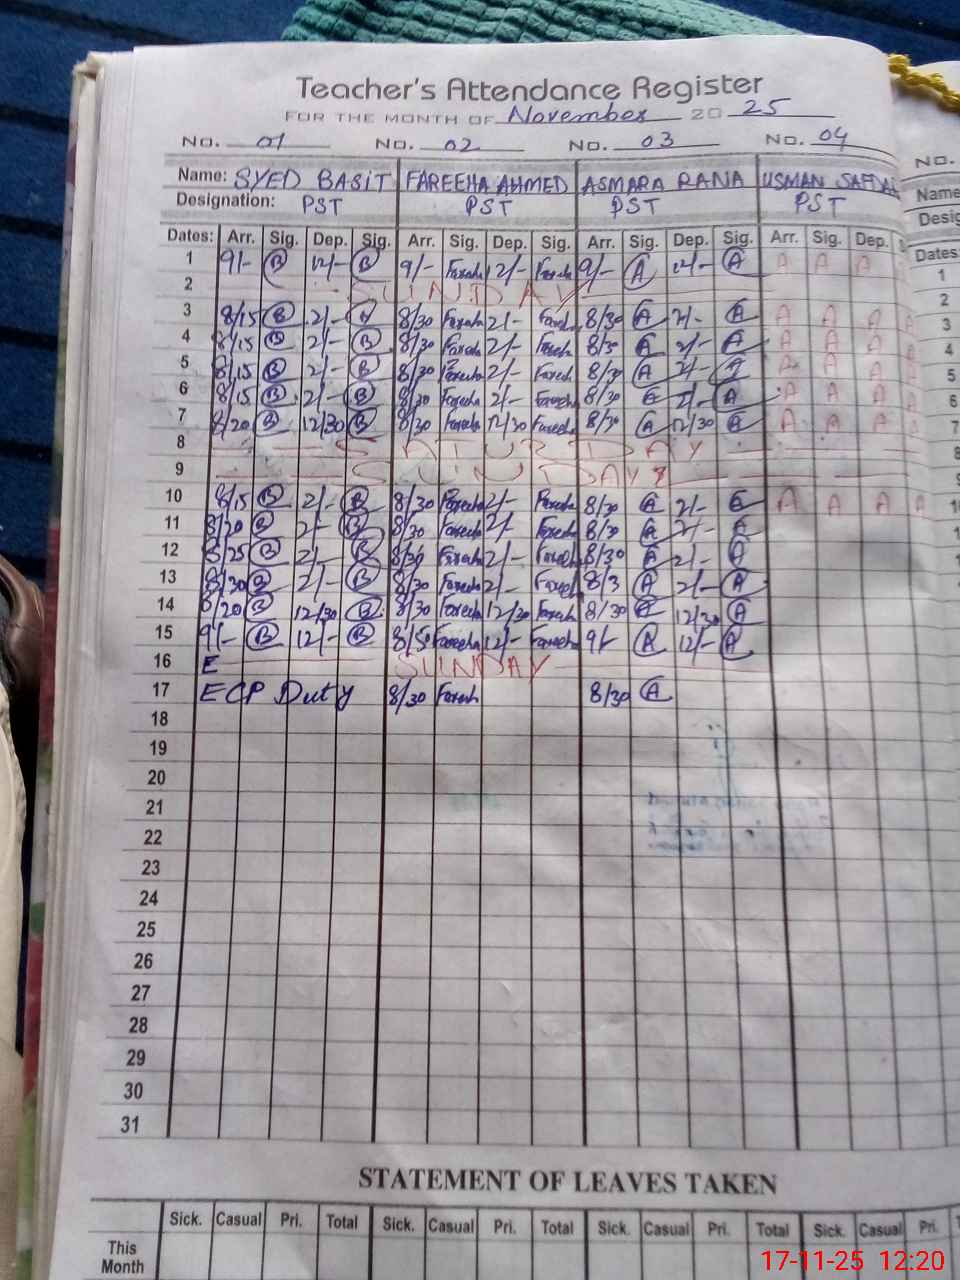 Teacher's Attendance Register
FOR THE MONTH OF November 20 25
No. 01 No. 02 No. 03 No. 04 No.
Name: SYED BASIT FAREEHA AHMED ASMARA RANA USMAN Name
Designation: PST PST PST PST Desig
Dates: Arr. Sig. Dep. Sig. Arr. Sig. Dep. Sig. Arr. Sig. Dep. Sig. Arr. Sig. Dep. Dates:
1 9/- B 12/- B 9/- Fareeha 12/- Fareeha 9/- A 12/- A A A A 1
2 SUNDAY 2
3 8/15 B 2/- B 8/30 Fareeha 2/- Fareeha 8/30 A 2/- A A A A A 3
4 8/15 B 2/- B 8/30 Fareeha 2/- Fareeha 8/30 A 2/- A A A A A 4
5 8/15 B 2/- B 8/30 Fareeha 2/- Fareeha 8/30 A 2/- A A A A A 5
6 8/15 B 2/- B 8/30 Fareeha 2/- Fareeha 8/30 A 2/- A A A A A 6
7 8/20 B 12/30 B 8/30 Fareeha 12/30 Fareeha 8/30 A 12/30 A A A A A 7
8 SATURDAY 8
9 SUNDAY 9
10 8/15 B 2/- B 8/30 Fareeha 2/- Fareeha 8/30 A 2/- A A A A A
11 8/20 B 2/- B 8/30 Fareeha 2/- Fareeha 8/30 A 2/- A
12 8/25 B 2/- B 8/30 Fareeha 2/- Fareeha 8/30 A 2/- A
13 8/30 B 2/- B 8/30 Fareeha 2/- Fareeha 8/3 A 2/- A
14 8/20 B 12/30 B 8/30 Fareeha 12/30 Fareeha 8/30 A 12/30 A
15 9/- B 12/- B 8/50 Fareeha 12/- Fareeha 9/- A 12/- A
16 E SUNDAY
17 ECP Duty 8/30 Fareeha 8/30 A
18
19
20
21
22
23
24
25
26
27
28
29
30
31
STATEMENT OF LEAVES TAKEN
Sick. Casual Pri. Total Sick. Casual Pri. Total Sick. Casual Pri. Total Sick. Casual Pri.
This
Month
17-11-25 12:20